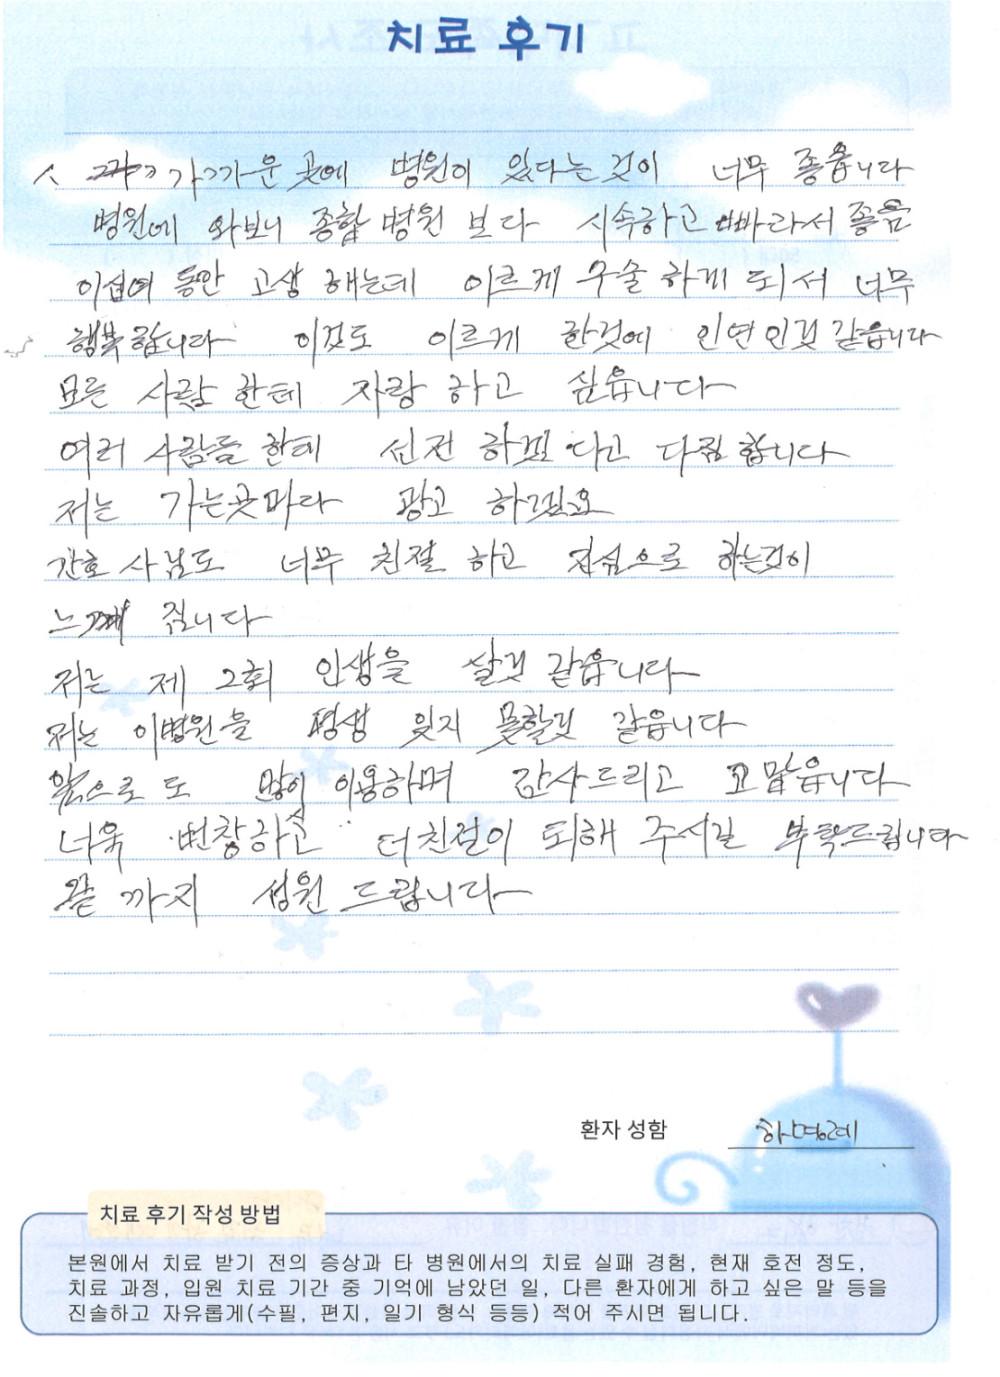 치료 후기
가까운 곳에 병원이 있다는 것이 너무 좋읍니다
병원에 와보니 종합 병원 보다 시속하고 빠라서 좋음
이십여 동안 고생 해는데 이르게 수술 하게 되서 너무
행복 합니다 이것도 이르게 한것에 인연 인것 같읍니다
모든 사람 한테 자랑 하고 싶읍니다
여러 사람들 한테 선전 하겠 다고 다짐 합니다
저는 가는곳마다 광고 하겠요
간호 사님도 너무 친절 하고 진심으로 하는것이
느껴 집니다
저는 제 2회 인생을 살것 같읍니다
저는 이병원을 평생 잊지 못할것 같읍니다
앞으로 도 많이 이용하며 감사드리고 고맙읍니다
너욱 번창하고 더친절이 되해 주시길 부탁드립니다
끝 까지 성원 드립니다
환자 성함 하명례
치료 후기 작성 방법
본원에서 치료 받기 전의 증상과 타 병원에서의 치료 실패 경험, 현재 호전 정도,
치료 과정, 입원 치료 기간 중 기억에 남았던 일, 다른 환자에게 하고 싶은 말 등을
진솔하고 자유롭게(수필, 편지, 일기 형식 등등) 적어 주시면 됩니다.